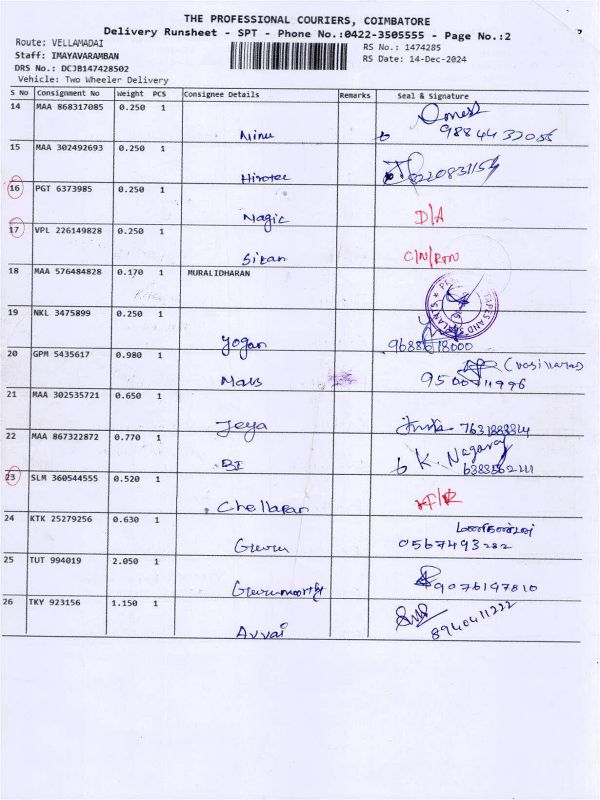 THE PROFESSIONAL COURIERS, COIMBATORE
Delivery Runsheet - SPT - Phone No.:0422-3505555 - Page No.:2
Route: VELLAMADAI
RS No.: 1474285
Staff: IMAYAVARAMBAN
RS Date: 14-Dec-2024
DRS No.: DCJB147428502
Vehicle: Two Wheeler Delivery
S No Consignment No Weight PCS Consignee Details Remarks Seal & Signature
14 MAA 868317085 0.250 1
Minu
15 MAA 302492693 0.250 1
Hirotec
16 PGT 6373985 0.250 1
Magic D/A
17 VPL 226149828 0.250 1
C/N/RTN
18 MAA 576484828 0.170 1 MURALIDHARAN
19 NKL 3475899 0.250 1
Yogan
20 GPM 5435617 0.980 1
21 MAA 302535721 0.650 1
Jeya
22 MAA 867322872 0.770 1
K. Nagaraj
23 SLM 360544555 0.520 1
24 KTK 25279256 0.630 1
Guru
0567493232
25 TUT 994019 2.050 1
Gurumoorthy 9076197810
26 TKY 923156 1.150 1
Avvai 8940411222